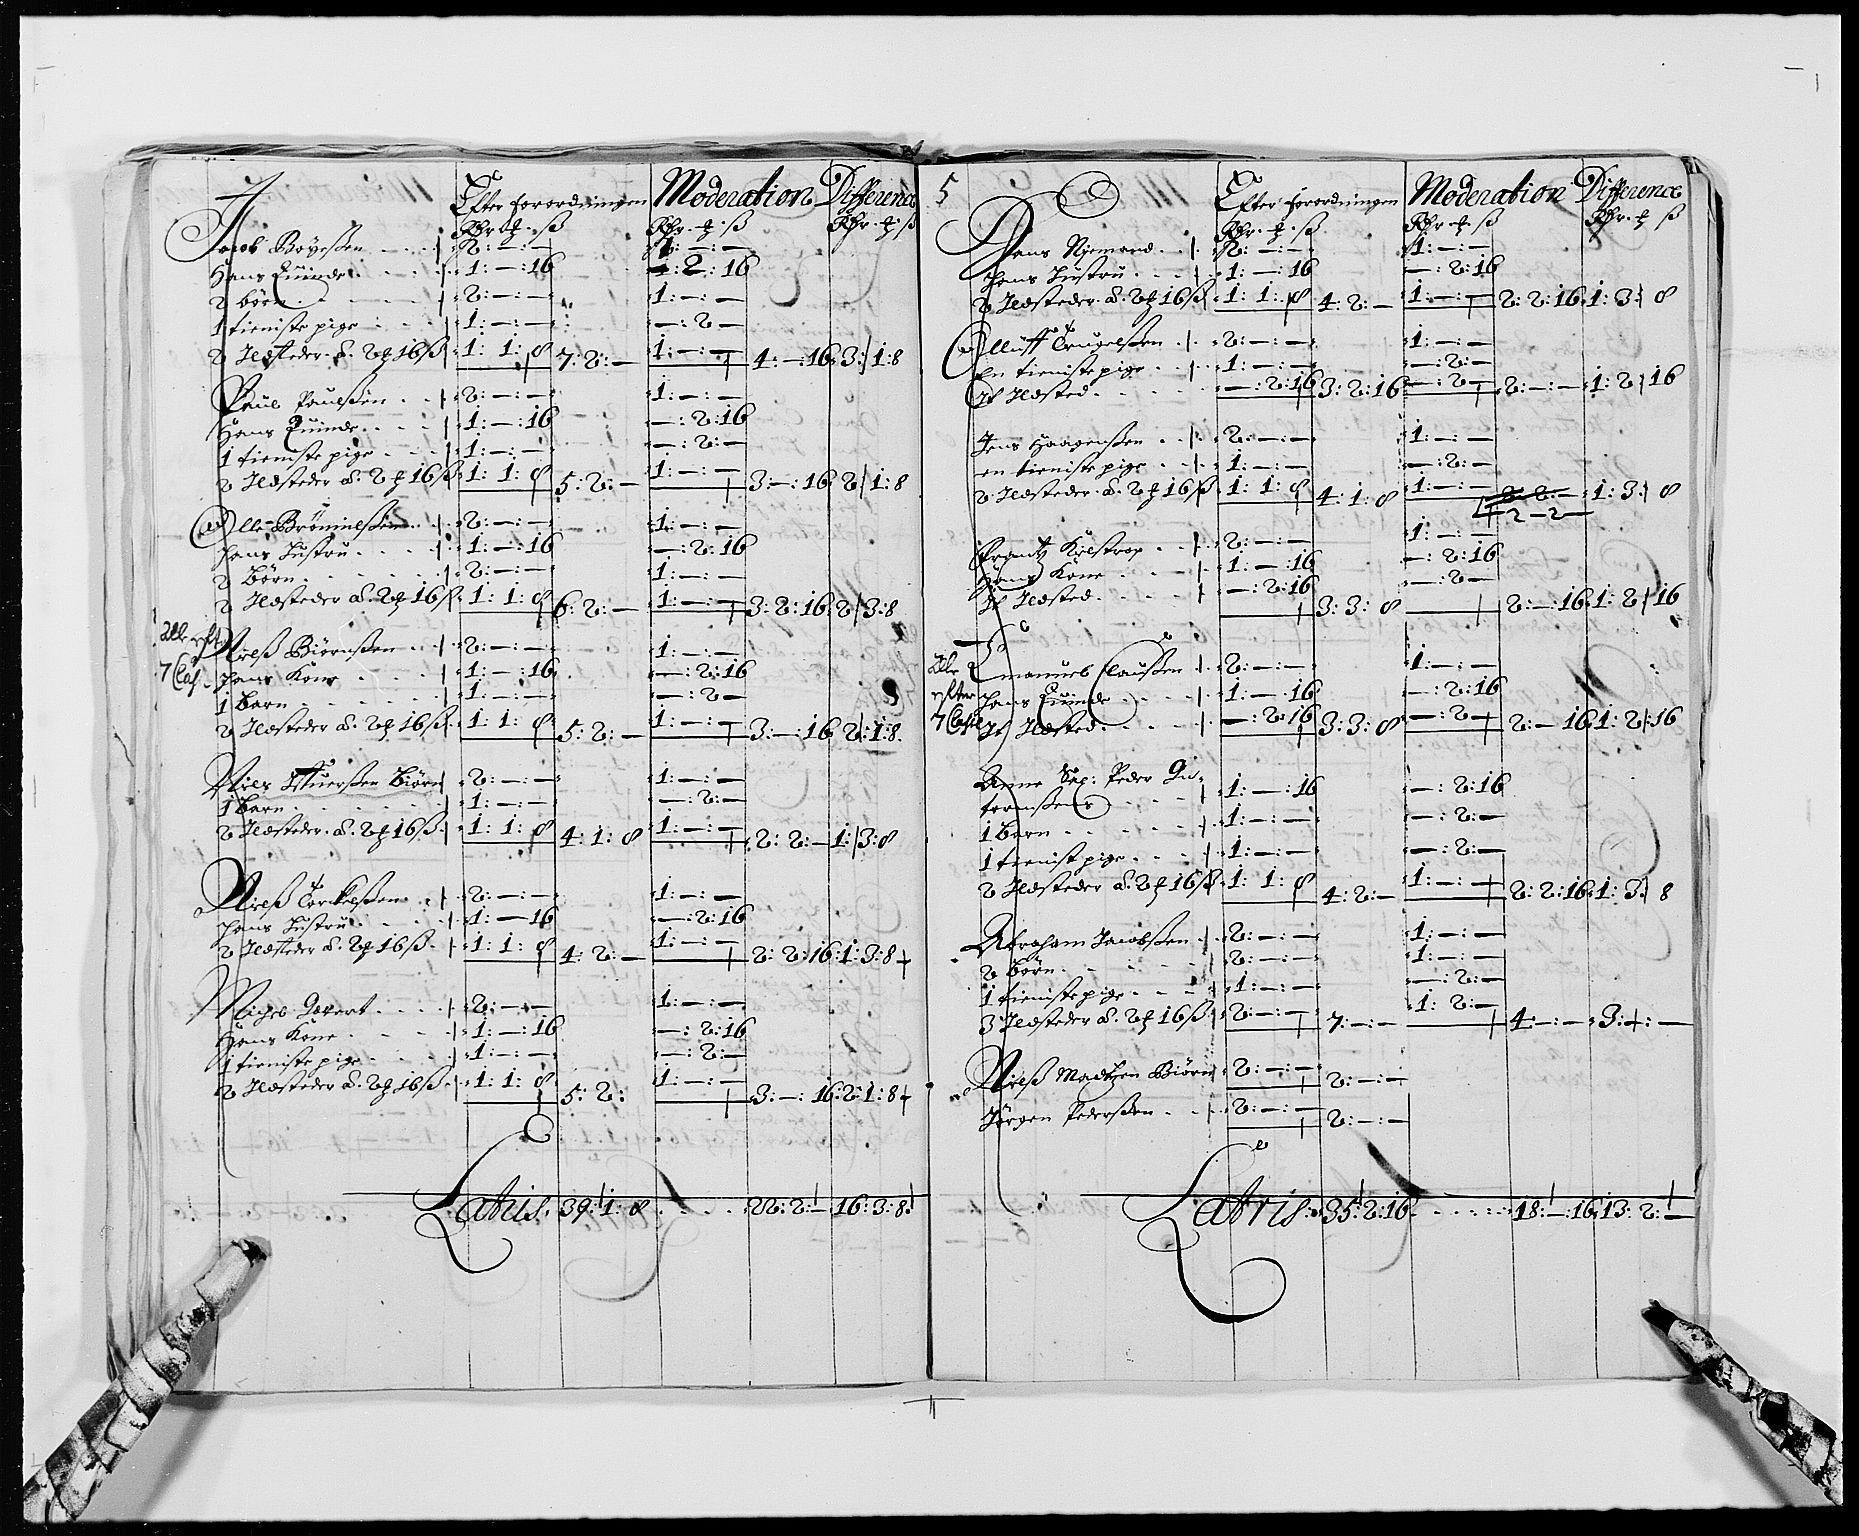 Efter Forordningen Moderation Difference
Rdr. ꝑ. ß Rdr. ꝑ. ß Rdr. ꝑ. ß
Jacob Boyessen 2: — : — 1: — : —
Hans Quinde 1: — : 16 — : 2 : 16
2 børn 2: — : — 1: — : —
1 tieniste pige 1: — : — — : 2 —
2 Ildsteder à 2 ꝑ 16 ß 1: 1: 8 7: 2: — 1: — : — 4: — : 16 3: 1: 8
Paul Paulssen 2: — : — 1: — : —
Hans Quinde 1: — : 16 — : 2: 16
1 tieniste pige 1: — : — — : 2: —
2 Ildsteder à 2 ꝑ 16 ß 1: 1: 8 5: 2: — 1: — : — 3: — : 16 2: 1: 8
Olle 2: — : — 1: — : —
Hans Hustru 1: — : 16 — : 2: 16
2 Børn 2: — : — 1: — : —
2 Ildsteder à 2 ꝑ 16 ß 1: 1: 8 6: 2: — 1: — : — 3: 2: 16 2: 3: 8
Alle efter
Nielß Biørnssen 2: — : — 1: — : —
7 Class. Hans Kone 1: — : 16 — : 2: 16
1 Barn 1: — : — — : 2 —
2 Ildsteder à 2 ꝑ 16 ß 1: 1: 8 5: 2: — 1: — : — 3: — : 16 2: 1: 8
Niels Biørn 2: — : — 1: — : —
1 Barn 1: — : — — : 2: —
2 Ildsteder à 2 ꝑ 16 ß 1: 1: 8 4: 1: 8 1: — : — 2: 2: — 1: 3: 8
Nielß Torkelssen 2: — : — 1: — : —
Hans Hustru 1: — 16 — : 2: 16
2 Ildsteder à 2 ꝑ 16 ß 1: 1: 8 4: 2: — 1: — : — 2: 2: 16 1: 3: 8
Michel 2: — : — 1: — : —
Hans Kone 1: — : 16 — : 2: 16
1 tieniste pige 1: — : — — : 2: —
2 Ildsteder à 2 ꝑ 16 ß 1: 1: 8 5: 2: 1: — : — 3: — : 16 2: 1: 8
Latris. 39: 1: 8 22: 2: — 16: 3: 8
5 Efter Forordningen Moderation Difference
Rdr. ꝑ. ß Rdr. ꝑ. ß Rdr. ꝑ ß
Hans Niemand 2: — : — 1: — : —
Hans Hustru 1: — : 16 — : 2: 16
2 Ildsteder à 2 ꝑ 16 ß 1: 1: 8 4: 2: — 1: — : — 2: 2: 16 1: 3: 8
Olluff Trugelssen 2: — : — 1: — : —
En tieniste pige 1: — : — — : 2: —
It Ildsted — : 2: 16 3: 2: 16 — : 2 — 2: — : — 1: 2: 16
Jens Haagenssen 2: — : — 1: — : —
en tieniste pige 1: — : — — : 2: —
2 Ildsteder à 2 ꝑ 16 ß 1: 1: 8 4: 1: 8 1: — : — 2: 2: — 1: 3: 8
2 — 2 —
Frantz Kolstrop 2: — : — 1: — : —
Hans Kone 1: — : 16 — : 2: 16
It Ildsted — : 2: 16 3: 3: 8 — : 2 — 2: — : 16 1: 2: 16
Alle Emanuel Claussen 2: — : — 1: — : —
efter Hans Quinde 1: — : 16 — : 2: 16
7 Class It Ildsted — : 2: 16 3: 3: 8 — : 2 — 2: — 16 1: 2: 16
Anne Sal: Peder Gu-
tormssens 1: — : 16 — : 2: 16
1 Barn 1: — : — — : 2: —
1 tienist pige 1: — : — — : 2: —
2 Ildsteder à 2 ꝑ 16 ß 1: 1: 8 4: 2: — 1: — : — 2: 2: 16 1: 3: 8
Abraham Jacobssen 2: — : — 1: — : —
2 Børn 2: — : — 1: — : —
1 tieniste pige 1: — : — — : 2: —
3 Ildsteder à 2 ꝑ 16 ß 2: — : — 7: — : — 1: 2: — 4: — : — 3: — : —
Nielß Madtzen Biørn 2: — : — 2: — : —
Jørgen Pederssen 2: — : — 2: — : —
Latris. 35: 2: 16 18: — : 16 13: 2: —